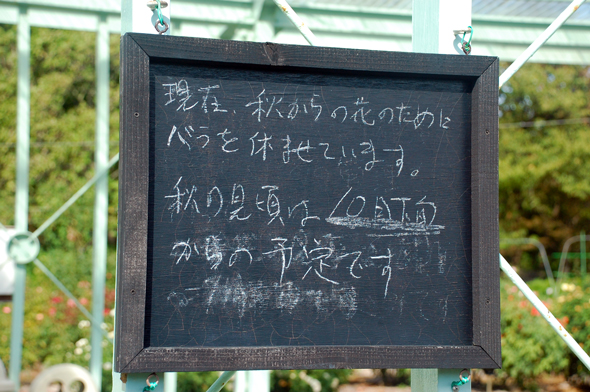 現在、秋からの花のために
バラを休ませています。
秋の見頃は10月下旬
からの予定です